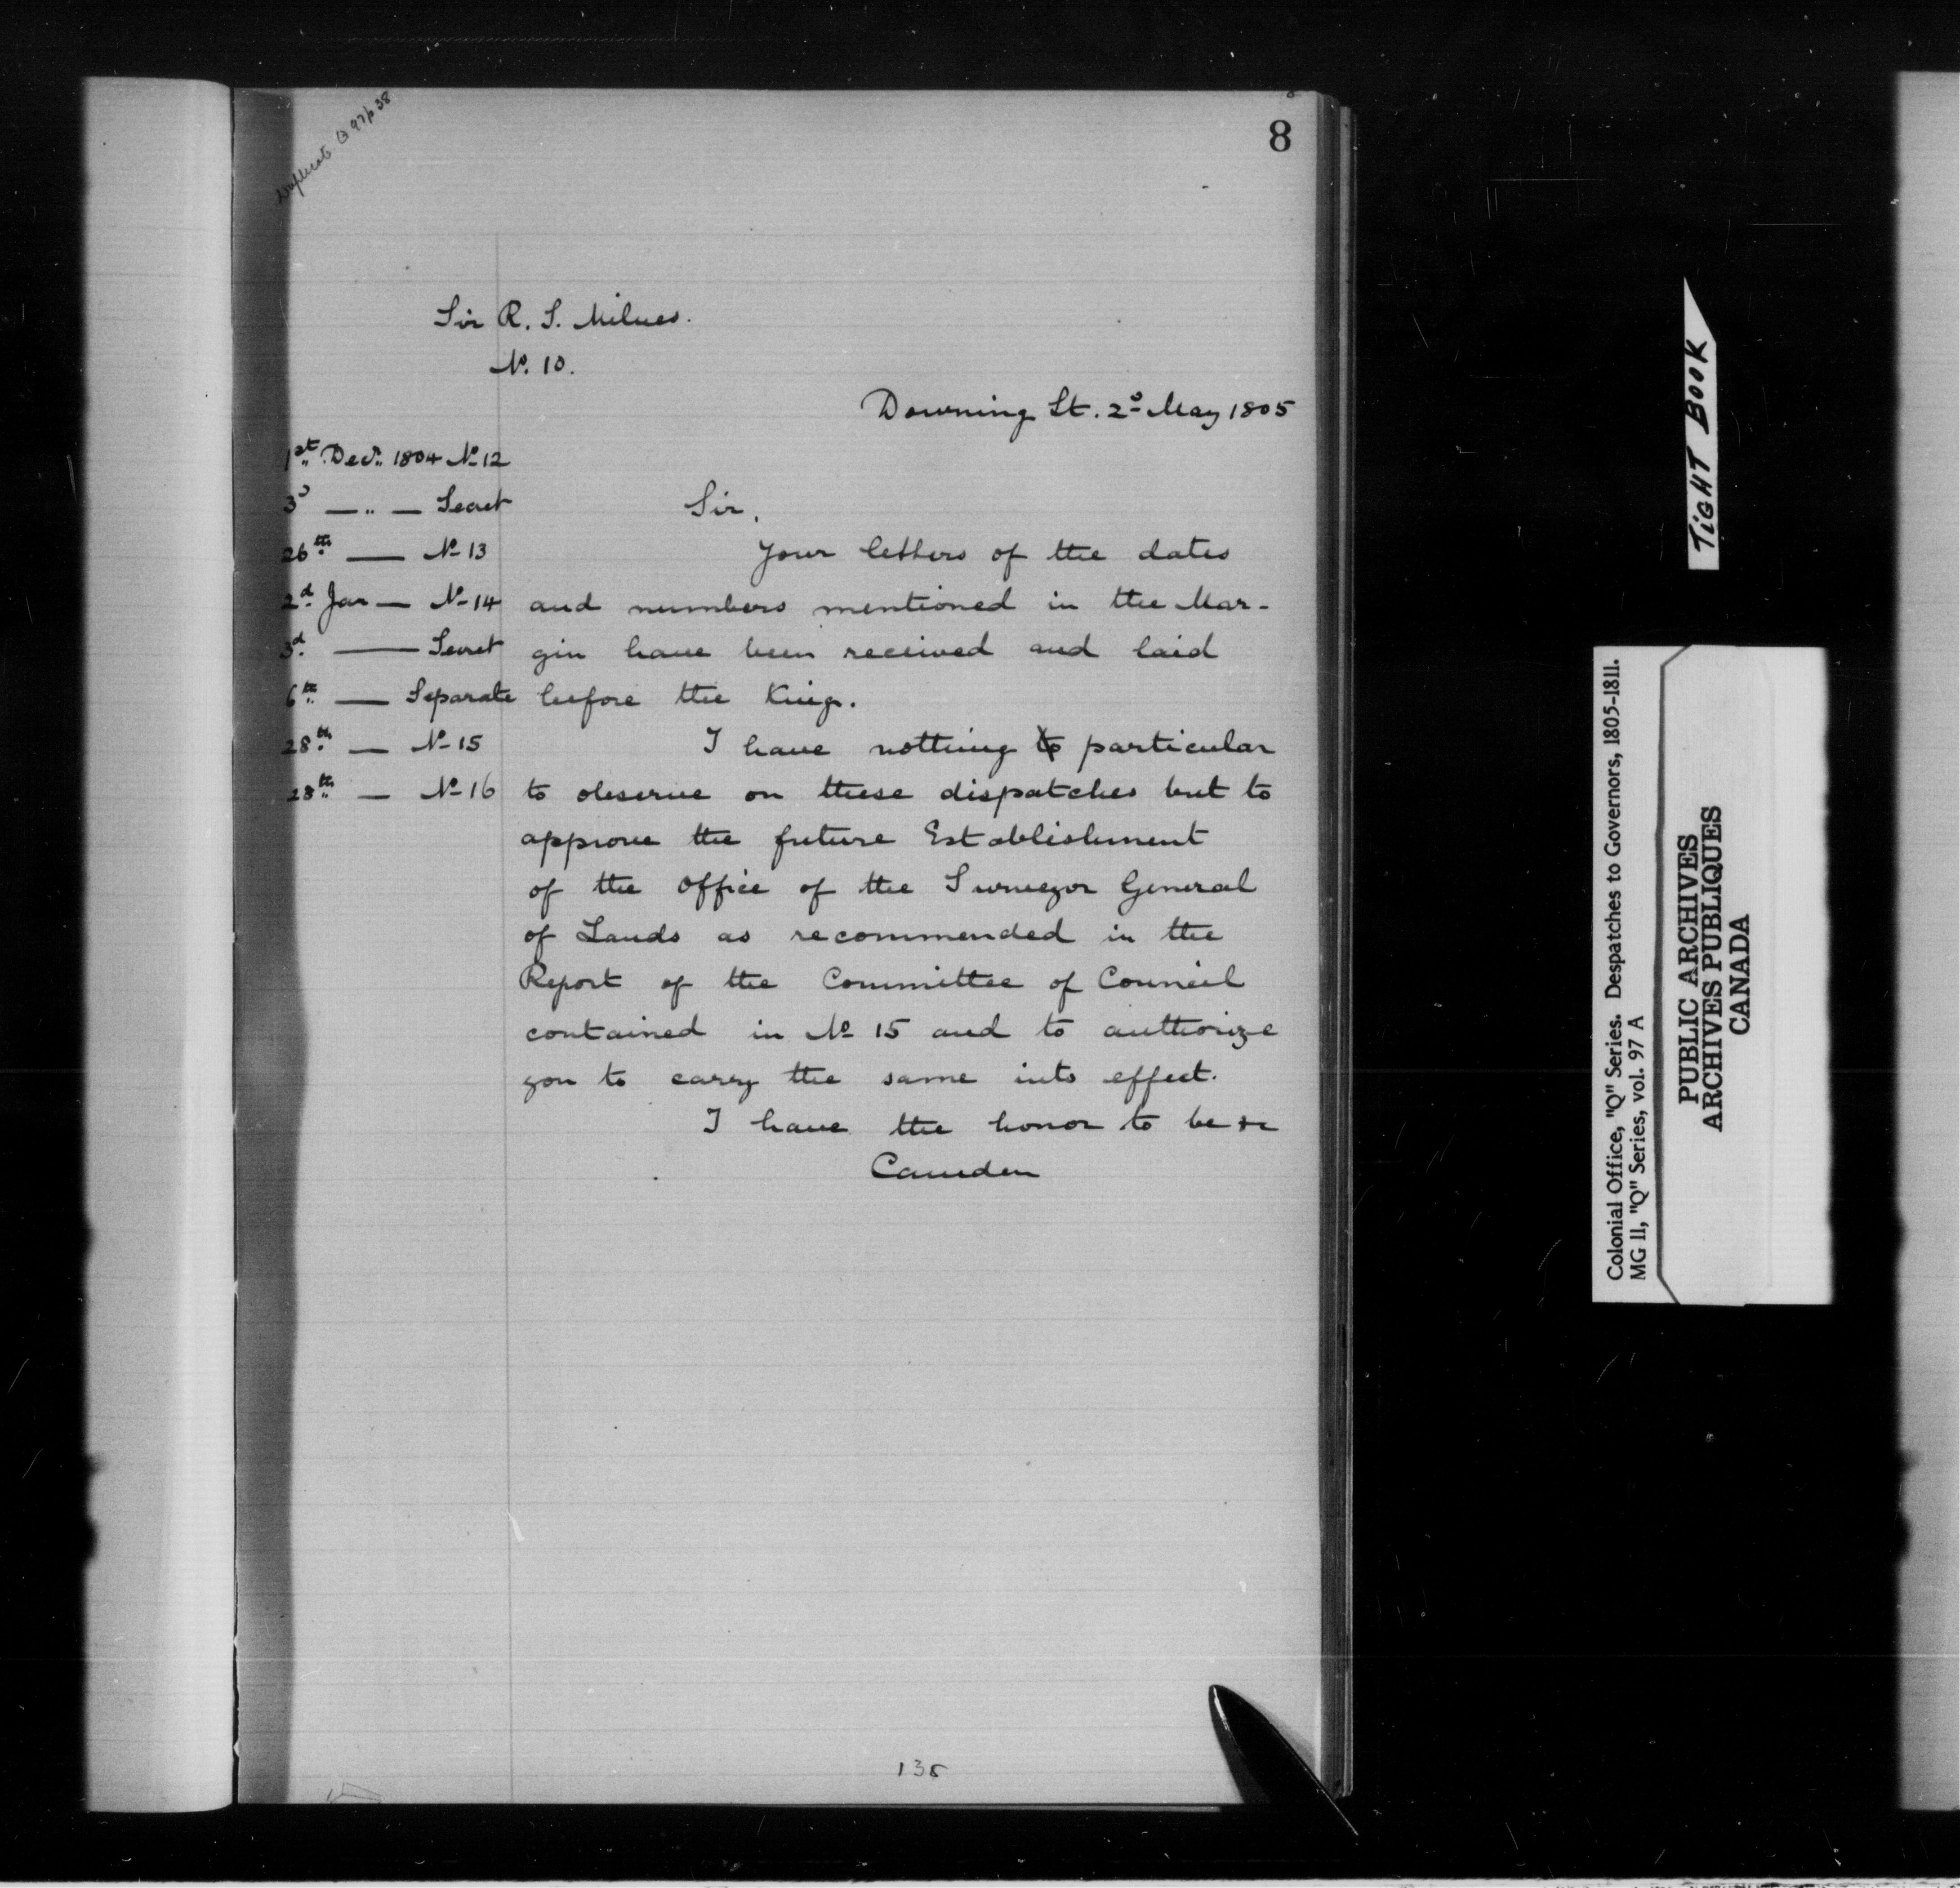 Duplicate Q 97 p 38
8
Sir R. S. Milnes.
No. 10.
Downing St. 2d May 1805
1st Decr. 1804 No 12
3d — " — Secret
26th — No 13
2d. Jan — No 14
3d. — Secret
6th — Separate
28th — No 15
28th — No 16
Sir,
Your letters of the dates
and numbers mentioned in the Mar-
gin have been received and laid
before the King.
I have nothing to particular
to observe on these dispatches but to
approve the future Establishment
of the Office of the Surveyor General
of Lands as recommended in the
Report of the Committee of Council
contained in No 15 and to authorize
you to carry the same into effect.
I have the honor to be &c
Camden
138
TIGHT BOOK
Colonial Office, "Q" Series. Despatches to Governors, 1805-1811.
MG 11, "Q" Series, vol. 97 A
PUBLIC ARCHIVES
ARCHIVES PUBLIQUES
CANADA